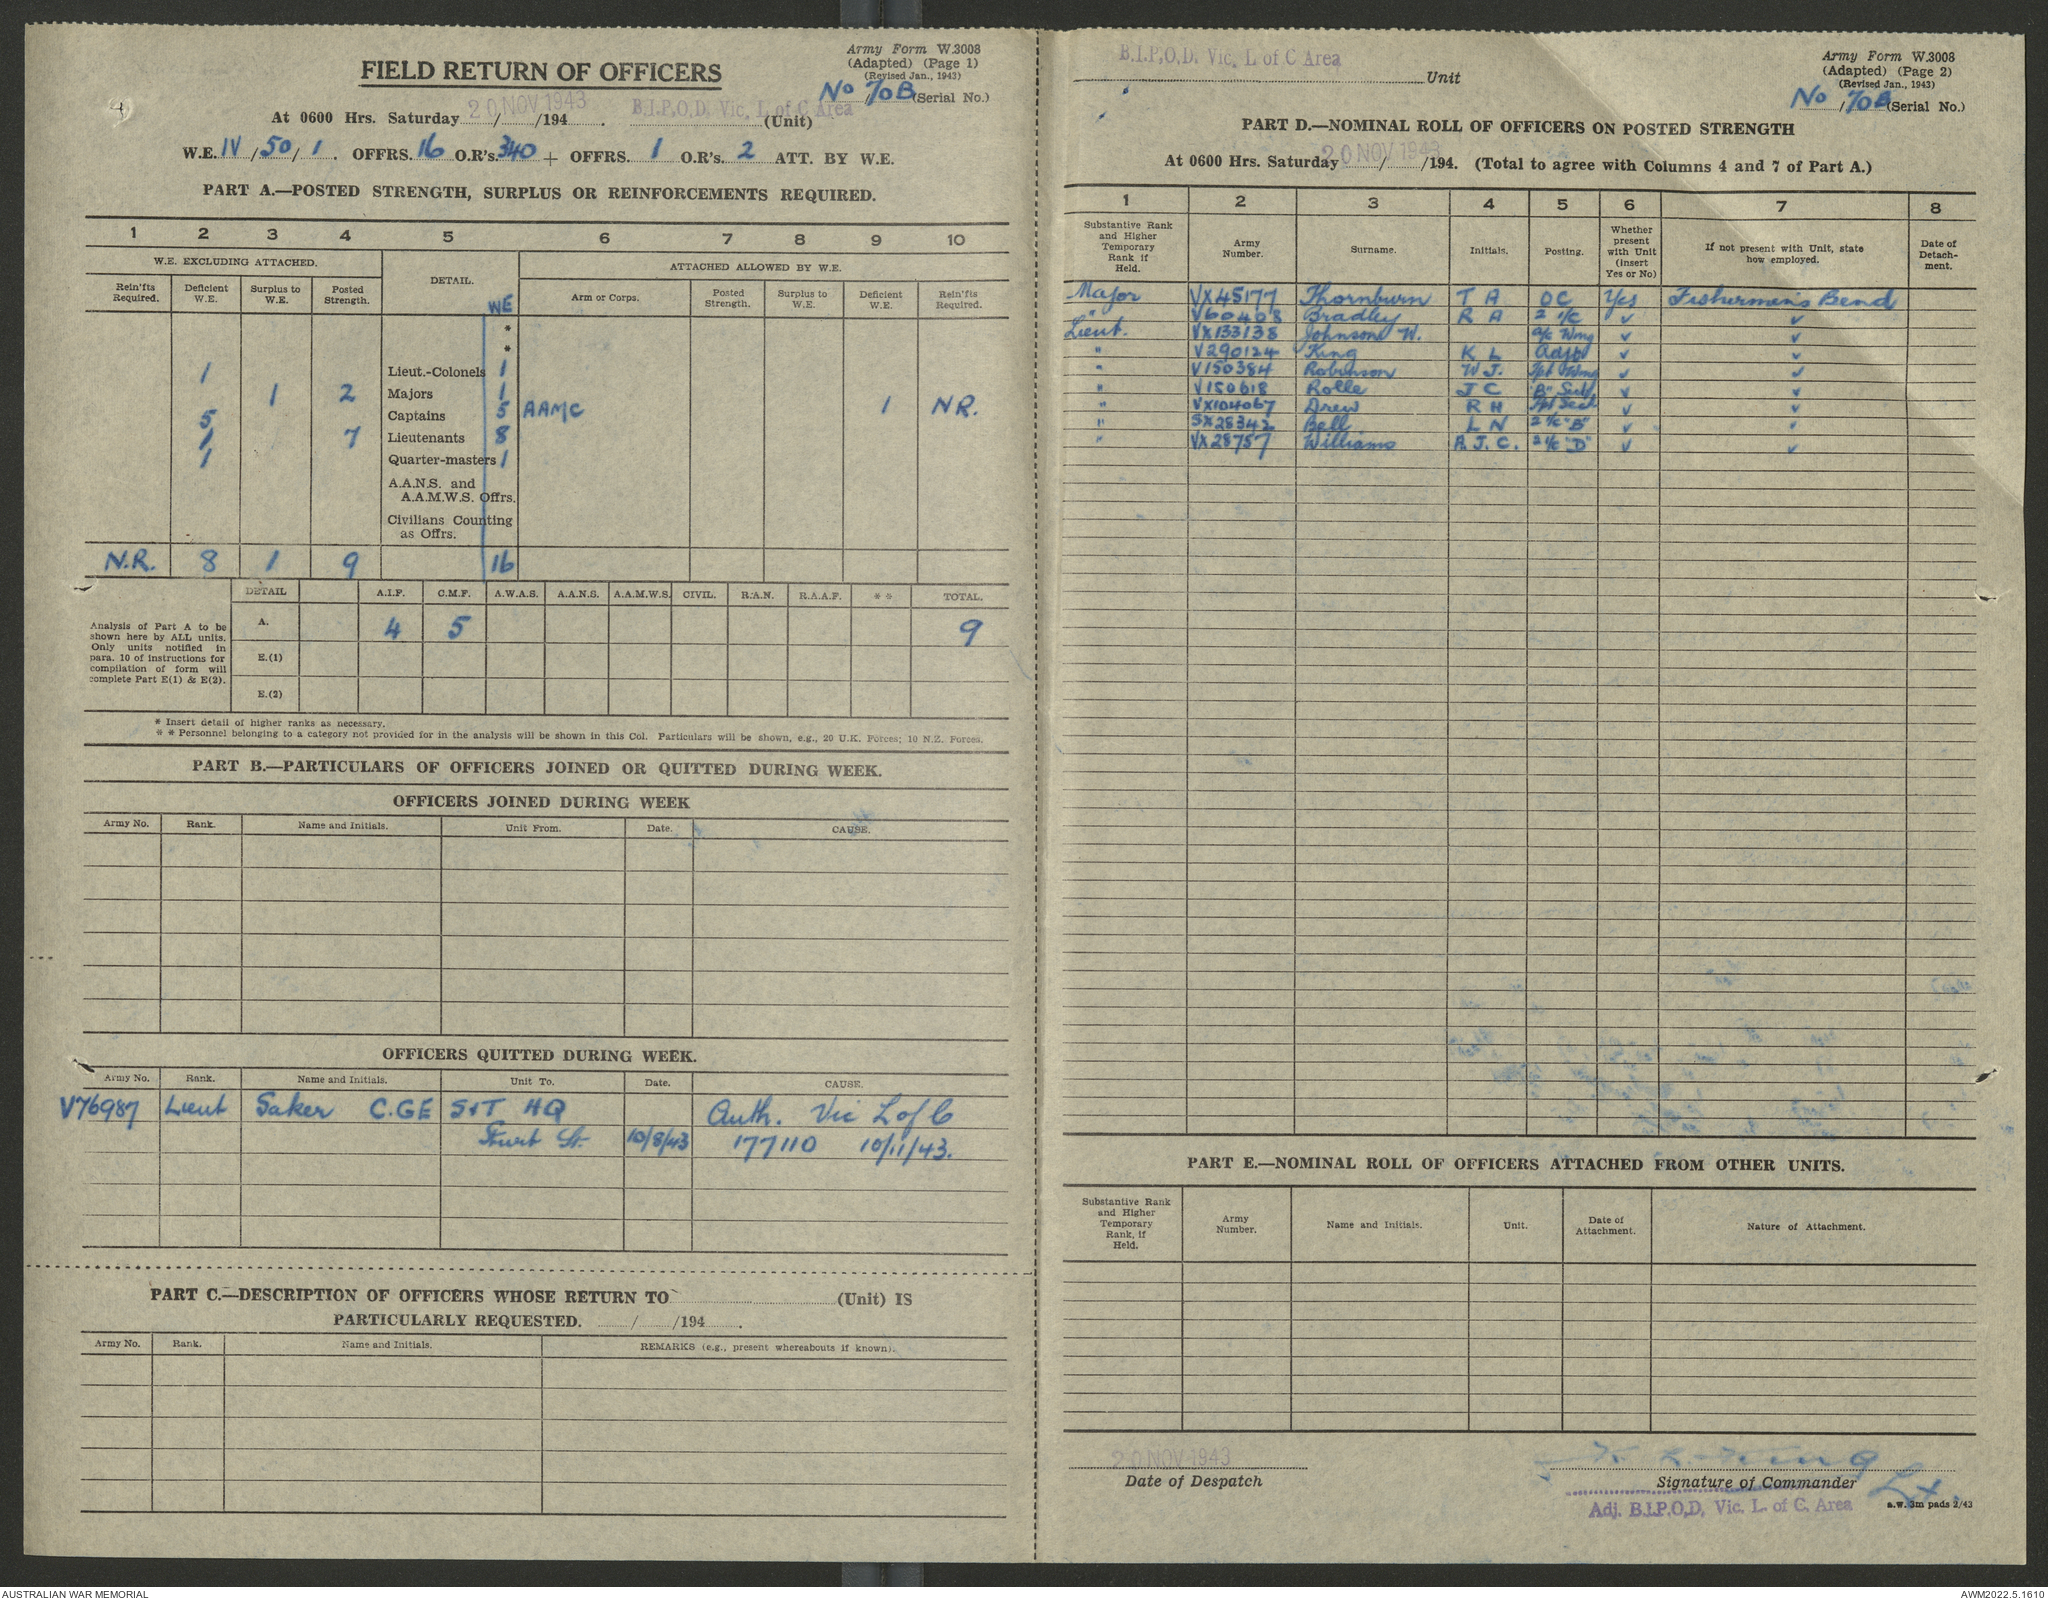 Army Form W.3008
(Adapted) (Page 1)
(Revised Jan., 1943)
No 70B (Serial No.)
FIELD RETURN OF OFFICERS
At 0600 Hrs. Saturday 20 NOV 1943 / /194 . B.I.P.O.D. Vic. L. of C. Area (Unit)
W.E. IV / 50 / 1 . OFFRS. 16 O.R's. 340 + OFFRS. 1 O.R's. 2 ATT. BY W.E.
PART A.—POSTED STRENGTH, SURPLUS OR REINFORCEMENTS REQUIRED.
1 2 3 4 5 6 7 8 9 10
W.E. EXCLUDING ATTACHED. DETAIL. ATTACHED ALLOWED BY W.E.
Rein'fts Required. Deficient W.E. Surplus to W.E. Posted Strength. WE Arm or Corps. Posted Strength. Surplus to W.E. Deficient W.E. Rein'fts Required.
*
*
1 Lieut.-Colonels 1
1 2 Majors 1
5 Captains 5 AAMC 1 N.R.
1 7 Lieutenants 8
1 Quarter-masters 1
A.A.N.S. and
A.A.M.W.S. Offrs.
Civilians Counting
as Offrs.
N.R. 8 1 9 16
DETAIL A.I.F. C.M.F. A.W.A.S. A.A.N.S. A.A.M.W.S. CIVIL. R.A.N. R.A.A.F. * * TOTAL.
Analysis of Part A to be
shown here by ALL units.
Only units notified in
para. 10 of instructions for
compilation of form will
complete Part E(1) & E(2).
A. 4 5 9
E.(1)
E.(2)
* Insert detail of higher ranks as necessary.
* * Personnel belonging to a category not provided for in the analysis will be shown in this Col. Particulars will be shown, e.g., 20 U.K. Forces; 10 N.Z. Forces.
PART B.—PARTICULARS OF OFFICERS JOINED OR QUITTED DURING WEEK.
OFFICERS JOINED DURING WEEK
Army No. Rank. Name and Initials. Unit From. Date. CAUSE.
OFFICERS QUITTED DURING WEEK.
Army No. Rank. Name and Initials. Unit To. Date. CAUSE.
V76987 Lieut Saker C.GE S&T HQ Auth. Vic L of C
Sturt St. 10/8/43 177110 10/11/43.
PART C.—DESCRIPTION OF OFFICERS WHOSE RETURN TO (Unit) IS
PARTICULARLY REQUESTED. / /194 .
Army No. Rank. Name and Initials. REMARKS (e.g., present whereabouts if known).
B.I.P.O.D. Vic. L of C Area Unit
Army Form W.3008
(Adapted) (Page 2)
(Revised Jan., 1943)
No / 70B (Serial No.)
PART D.—NOMINAL ROLL OF OFFICERS ON POSTED STRENGTH
At 0600 Hrs. Saturday 20 NOV 1943 / /194. (Total to agree with Columns 4 and 7 of Part A.)
1 2 3 4 5 6 7 8
Substantive Rank and Higher Temporary Rank if Held. Army Number. Surname. Initials. Posting. Whether present with Unit (insert Yes or No) If not present with Unit, state how employed. Date of Detachment.
Major VX45177 Thornburn T A OC Yes Fishermens Bend
" V60408 Bradley R A 2 i/c ✓ ✓
Lieut. VX133138 Johnson W. a/c Wmg ✓ ✓
" V290124 King K L Adjt ✓ ✓
" V150384 Robinson W J. ✓ ✓
" V150618 Rolle J C "B" Sec ✓ ✓
" VX104067 Drew R H Sec ✓ ✓
" SX28342 Bell L N 2 i/c "B" ✓ ✓
" VX28757 Williams A. J. C. 2 i/c "D" ✓ ✓
PART E.—NOMINAL ROLL OF OFFICERS ATTACHED FROM OTHER UNITS.
Substantive Rank and Higher Temporary Rank, if Held. Army Number. Name and Initials. Unit. Date of Attachment. Nature of Attachment.
20 NOV 1943
Date of Despatch
K L King Lt.
Signature of Commander
Adj. B.I.P.O.D. Vic. L. of C. Area
a.w. 3m pads 2/43
AUSTRALIAN WAR MEMORIAL
AWM2022.5.1610